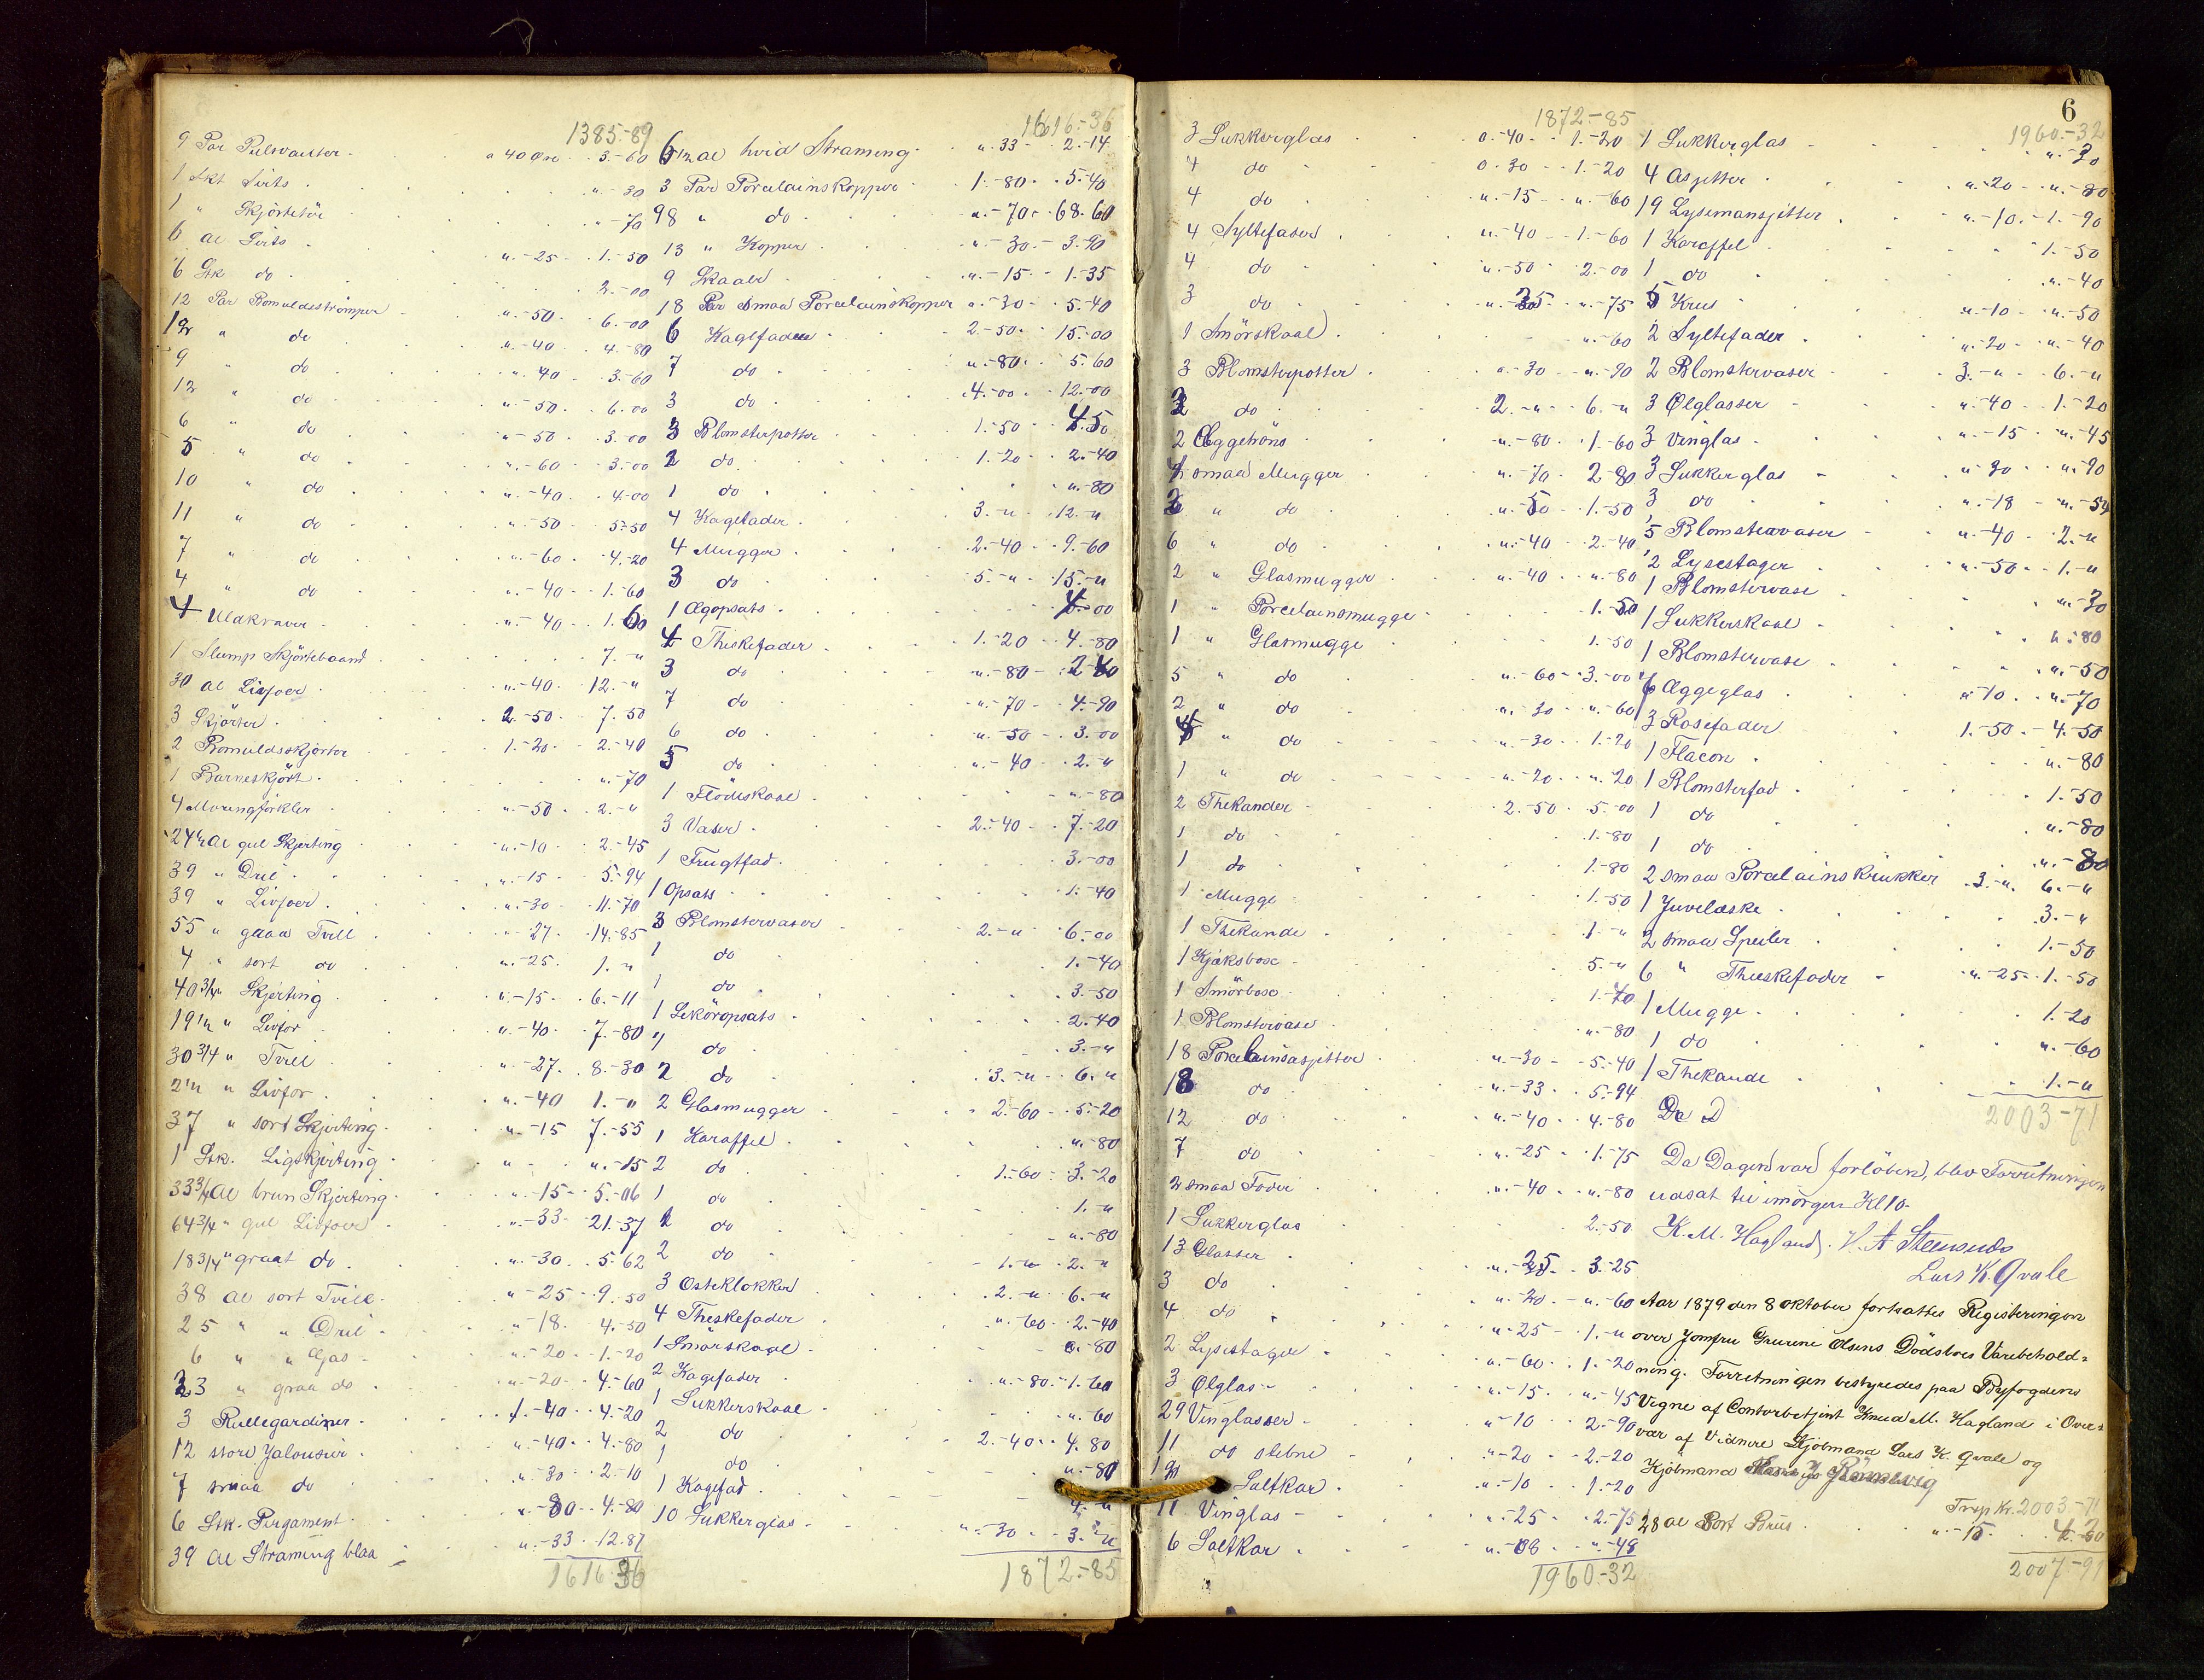 1385-89
9 Par Pulsvanter a 40 Øre 3.-60
1 Skt Sirts u.-30
1 " Skjörtetöi "-70
6 al Sirts u.-25 1.-50
6 Stk do 2.-00
12 Par Bomuldsströmper u.-50 6.-00
12 " do u.-40 4.-80
9 " do u.-40 3.-60
12 " do u.-50 6.00
6 " do u.-50 3.00
5 " do u.-60 3.-00
10 " do u.-40 4.-00
11 " do u.-50 5.-50
7 " do u.-60 4.20
4 " do u.-40 1.-60
4 Uldkraver u.-40 1.60
1 Slump Skjörtebaand 7.-u
30 al Livfoer u.-40 12.-u
3 Skjörter 2-50 7.50
2 Bomuldsskjörter 1.-20 2.-40
1 Barneskjört u.-70
4 Moringforkler u.-50 2.-u
24½ al gul Skjerting u.-10 2.-45
39 " Dril u.-15 5.-94
39 " Livfoer u.-30 11.-70
55 " graa Tvill -27 14.-85
4 " sort do u.-25 1.-u
40 3/4 " Skjerting u.-15 6.-11
19½ " Livfor u.-40 7.-80
30 3/4 " Tvill u.-27 8.-30
2½ " Livfor u.-40 1.-u
37 " sort Skjerting u.-15 7.-55
1 Stk. Ligskjerting u.-15
33 3/4 al brun Skjerting u.-15 5.-06
64 3/4 " gul Livfoer u.-33 21.-37
18 3/4 " graat do u.-30 5-62
38 al sort Tvill u-25 9.50
25 " " Dril u-18 4.-50
6 " " Gas u.-20 1.-20
23 " graa do u.-20 4.-60
3 Rullegardiner 1.-40 4.-20
12 store Jalousier u.-40 4.-80
7 smaa do u.-30 2.-10
6 Stk. Pergament u.-80 4.-80
39 al Straming blaa u.-33 12.87
1616.36
1616.-36
6½ al hvid Straming u.33 2.-14
3 Par Porcelainskopper 1.-80 5.-40
98 " do u.-70 68.60
13 " Kopper u.-30 3.-90
9 Skaaler u.-15 1.-35
18 Par smaa Porcelainskopper u.-30 5.-40
6 Kagefader 2.-50 15.-00
7 do u.-80 5.-60
3 do 4.-00 12.-00
3 Blomsterpotter 1.-50 4.50
2 do 1.-20 2.-40
1 do u.-80
4 Kagefader 3.-u 12.-u
4 Mugger 2.-40 9.-60
3 do 5.-u 15.-u
1 Ægopsats 4.-00
4 Theskefader 1.-20 4.-80
3 do u.-80 2.40
7 do u.-70 4.-90
6 do u.-50 3.00
5 do u.-40 2.-u
1 Flödeskaal u.-80
3 Vaser 2.-40 7.-20
1 Frugtfad 3.-00
1 Opsats 1.-40
3 Blomstervaser 2.-u 6.-00
1 do 1.-40
1 do 3.-50
1 Liköropsats 2.-40
1 do 3.-u
2 do 3.-u 6.-u
2 Glasmugger 2.-60 5.-20
1 Karaffel u.-80
2 do 1.-60 3.-20
1 do 1.-u
1 do u.-80
2 do 1.-u 2.-u
3 Osteklokker 2.-u 6.-u
4 Theskefader u.-60 2.-40
1 Smörskaal u.-80
2 Kagefader u.-80 1.-60
1 Sukkerskaal u.-60
2 do 2.-40 4.80
1 do u.-80
1 Kagefad 4.-u
10 Sukkerglas u.-30 3.-u
1872.-85
1872.-85
3 Sukkerglas 0.-40 1.-20
4 do 0.30 1.-20
4 do u.-15 u.-60
4 Syltefader u.-40 1.-60
4 do u.-50 2.-00
3 do u.-25 u.-75
1 Smörskaal u.-60
3 Blomsterpotter u.-30 u.-90
3 do 2.-u 6.-u
2 Æggehöns u.-80 1.-60
4 smaa Mugger u.-70 2-80
3 " do u.-50 1.-50
6 " do u.-40 2.-40
2 " Glasmugger u.-40 u.-80
1 " Porcelainsmugge 1.-50
1 " Glasmugge 1.-50
5 " do u.-60 3.-00
2 " do u.-30 u.-60
4 " do u.-30 1.-20
1 " do u.-20 u.-20
2 Thekander 2.-50 5.-00
1 do 1.-80
1 do 1.-80
1 Mugge 1.-50
1 Thekande 1.-u
1 Kjæksboxe 5.-u
1 Smörbox 1.-40
1 Blomstervase u.-80
18 Porcelainsasjetter u.-30 5.-40
18 do u.-33 5.-94
12 do u.-40 4.-80
7 do u.-25 1.-75
2 smaa Fader u.-40 u.-80
1 Sukkerglas 2.-50
13 Glasser u.-25 3.-25
3 do u.-20 u.-60
4 do u-25 1.-u
2 Lysestager u.-60 1.-20
3 Ølglas u.-15 u.-45
29 Vinglasser u-10 2.-90
11 do slebne u-20 2.-20
12 Saltkar u.-10 1.-20
11 Vinglas u.-25 2.-75
6 Saltkar u.-08 u.-48
1960.-32
6
1960.-32
1 Sukkerglas u.-30
4 Asjetter u.-20 u.-80
19 Lysemansjetter u.-10 1.-90
1 Karaffel 1.-50
1 do u.-40
5 Krus u.-10 u.-50
2 Syltefader u.-20 u.-40
2 Blomstervaser 3.-u 6.-u
3 Ølglasser u.-40 1.-20
3 Vinglas u.-15 u.-45
3 Sukkerglas u-30 u.-90
3 do u.-18 u.-54
5 Blomstervaser u.-40 2.-u
2 Lysestager u.-50 1.-u
1 Blomstervase u.-30
1 Sukkerskaal u.-80
1 Blomstervase u.-50
7 Æggeglas u-10 u.-70
3 Rosefader 1.-50 4.-50
1 Flacon u.-80
1 Blomsterfad 1.-50
1 do u.-80
1 do u.-80
2 smaa Porcelainskrukker 3.-u 6.-u
1 Juvelæske 3.-u
2 smaa Speiler 1.-50
6 " Theeskefader u-25 1.-50
1 Mugge 1.-20
1 do u.-60
1 Thekande 1.-u
2003-71
Da D
Da Dagen var forlöben, blev Forretningen
udsat til imorgen Kl 10.
K. M. Hagland.
Lars K. Qvale
Aar 1879 den 8 Oktober fortsattes Registeringen
over Jomfru Gurine Olsens Dödsboes Varebehold-
ning. Forretningen bestyredes paa Byfogdens
Vegne af Contorbetjent Knud M. Hagland i Over-
vær af Vidnerne Kjöbmand Lars K. Qvale og
Kjöbmand
Trsp Kr. 2003-71
28 al Sort Brüs u.-15 4.-20
2007-91